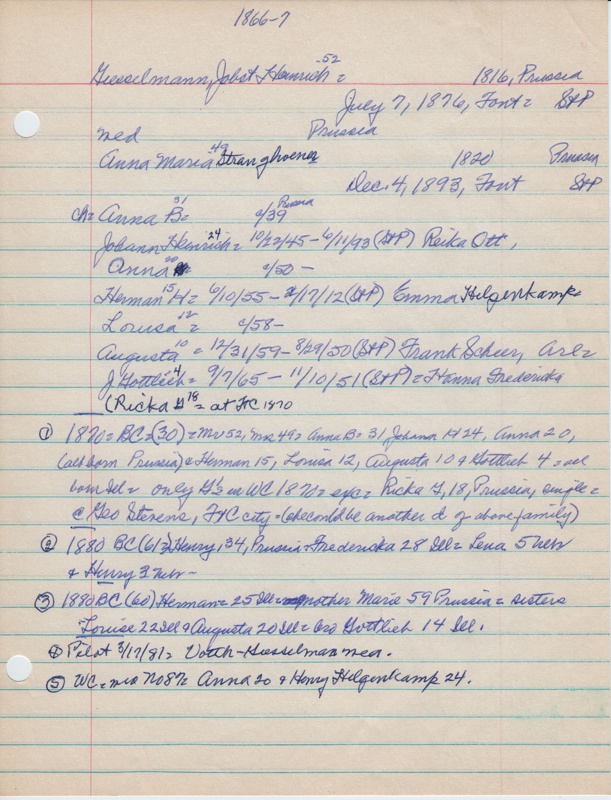 1866-7
52
Giesselmann, Jobst Heinrich = 1816, Prussia
July 7, 1876, Font = B+P
med Prussia
49
Anna Maria Stranghoener 1820 Prussia
Dec. 4, 1893, Font B+P
31 Prussia
ch = Anna B = c/39
24
Johann Heinrich = 10/22/45 - 6/11/93 (B+P) Reika Ott,
20
Anna c/50 -
15
Herman H = 6/10/55 - 2/17/12 (B+P) Emma Helgenkamp =
12
Louisa = c/58 -
10
Augusta = 12/31/59 - 8/29/50 (B+P) Frank Scheer, Arl =
4
J Gottlieb = 9/7/65 - 11/10/51 (B+P) = Hanna Fredericka
(Ricka G 18 = at FC 1870
① 1870 = BC = (30) = M 52, 49 = Anna B = 31 Johann H 24, Anna 20,
(all born Prussia) & Herman 15, Louisa 12, Augusta 10 & Gottlieb 4 = all
born Ill = only G's in WC 1870 = exc = Ricka G, 18, Prussia, single =
@ Geo Stevens, FxC city = (she could be another d of above family)
② 1880 BC (61) = Henry, 34, Prussia = Fredericka 28 Ill = Lena 5 Nebr
& Henry 3 Nebr -
③ 1880 BC (60) Herman = 25 Ill = mother Marie 59 Prussia = sisters
Louise 22 Ill & Augusta 20 Ill = bro Gottlieb 14 Ill.
④ Pilot 3/17/81 = Voth - Giesselman med.
⑤ WC = med No 87 = Anna 20 & Henry Helgenkamp 24.